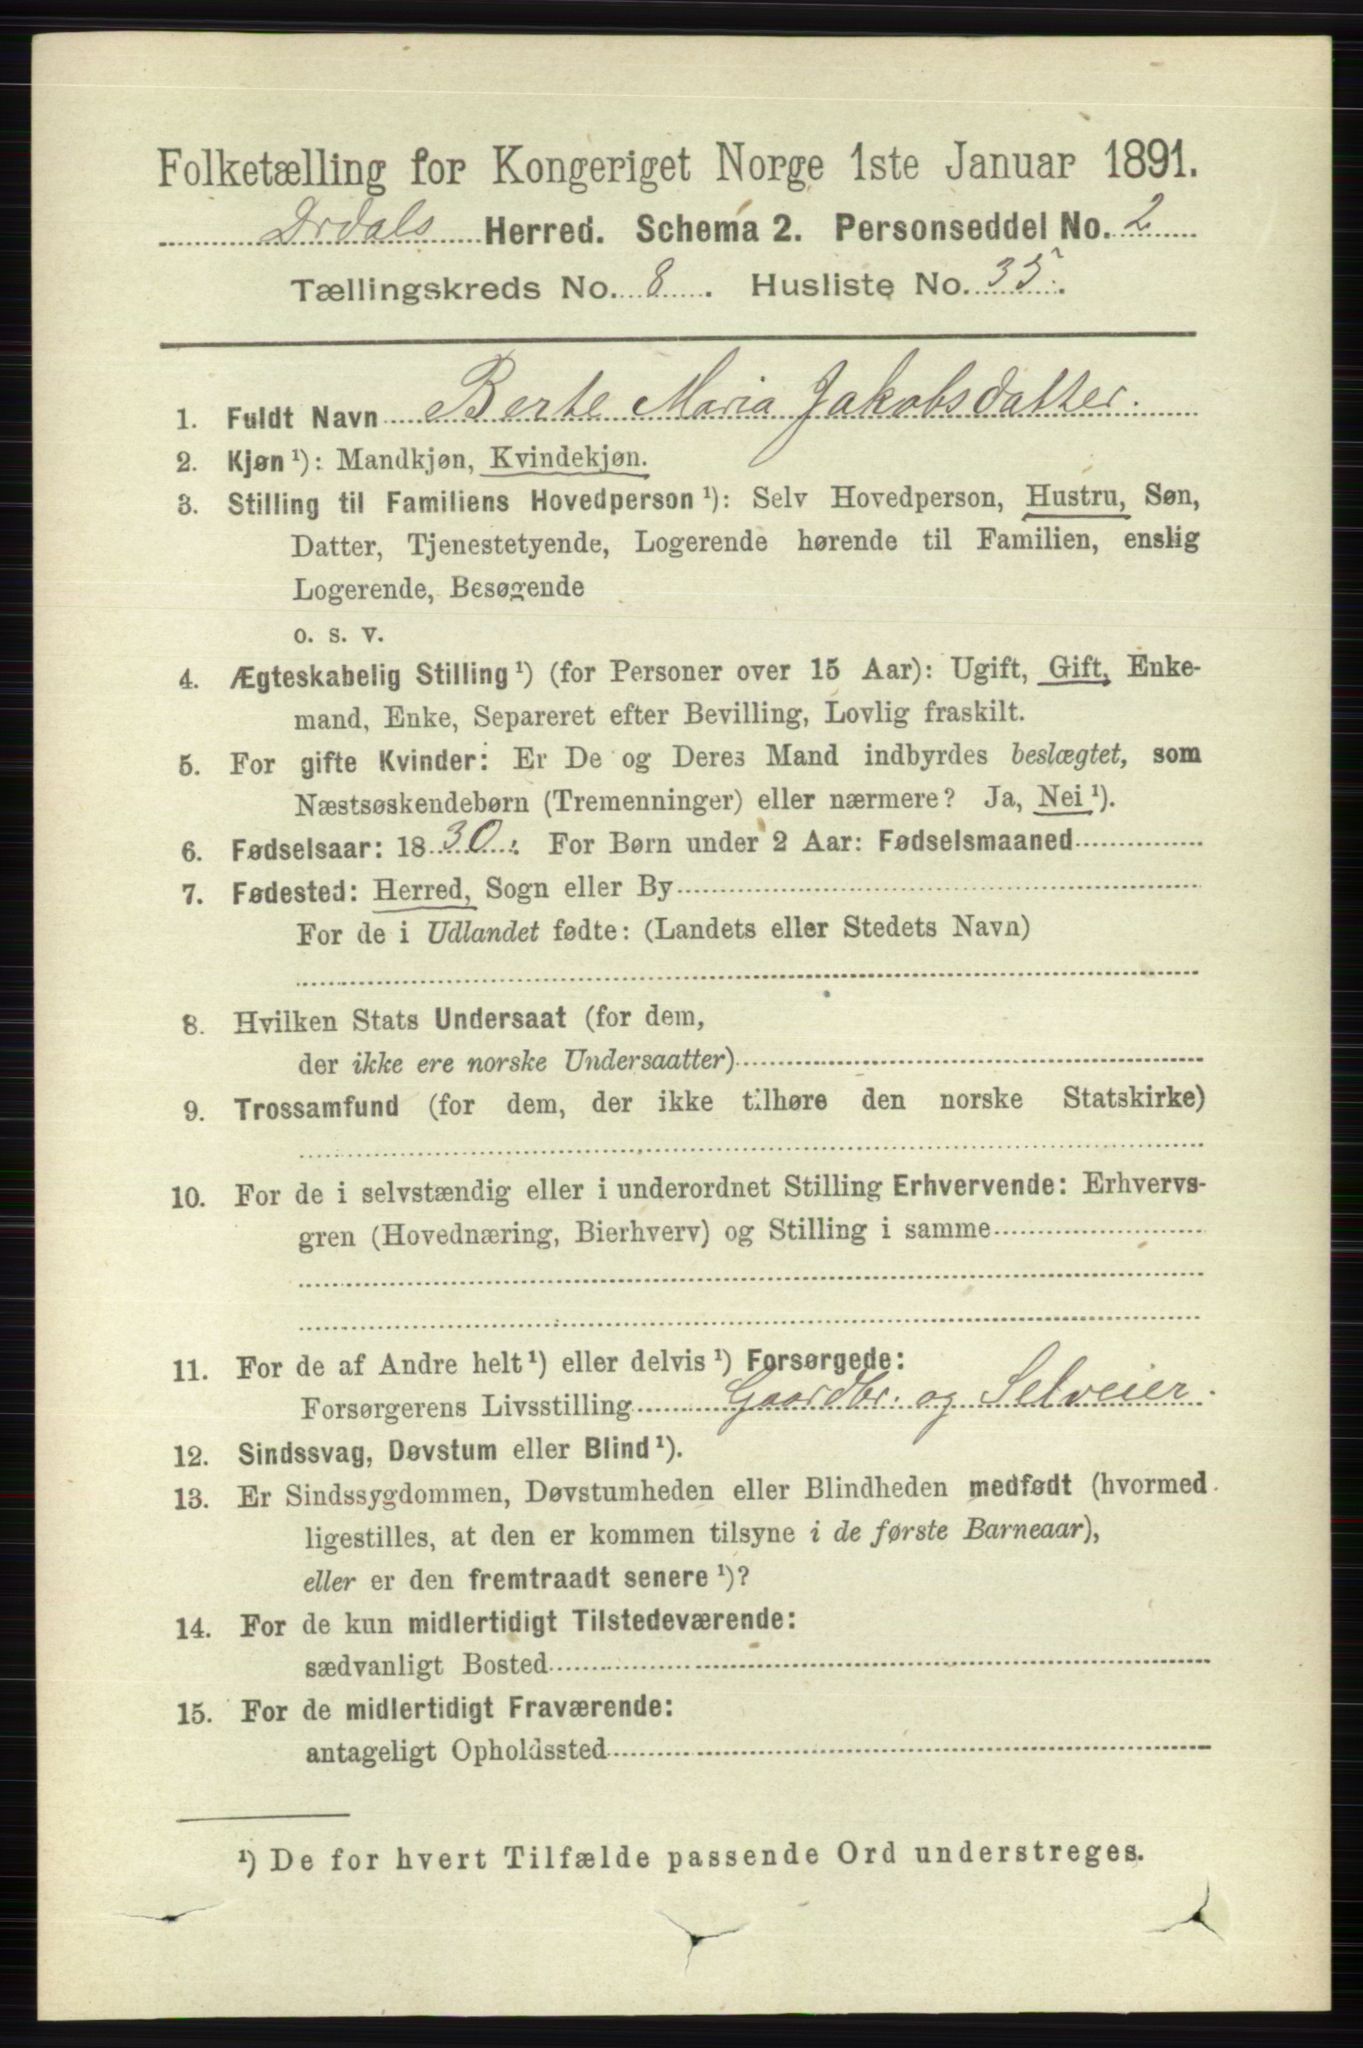 Folketælling for Kongeriget Norge 1ste Januar 1891.
Herred. Schema 2. Personseddel No. 2
Tællingskreds No. 8. Husliste No. 35.
1. Fuldt Navn Berte Maria Jakobsdatter.
2. Kjøn ¹): Mandkjøn, Kvindekjøn.
3. Stilling til Familiens Hovedperson ¹): Selv Hovedperson, Hustru, Søn,
Datter, Tjenestetyende, Logerende hørende til Familien, enslig
Logerende, Besøgende
o. s. v.
4. Ægteskabelig Stilling ¹) (for Personer over 15 Aar): Ugift, Gift, Enke-
mand, Enke, Separeret efter Bevilling, Lovlig fraskilt.
5. For gifte Kvinder: Er De og Deres Mand indbyrdes beslægtet, som
Næstsøskendebørn (Tremenninger) eller nærmere? Ja, Nei ¹).
6. Fødselsaar: 1830. For Børn under 2 Aar: Fødselsmaaned
7. Fødested: Herred, Sogn eller By
For de i Udlandet fødte: (Landets eller Stedets Navn)
8. Hvilken Stats Undersaat (for dem,
der ikke ere norske Undersaatter)
9. Trossamfund (for dem, der ikke tilhøre den norske Statskirke)
10. For de i selvstændig eller i underordnet Stilling Erhvervende: Erhvervs-
gren (Hovednæring, Bierhverv) og Stilling i samme
11. For de af Andre helt ¹) eller delvis ¹) Forsørgede:
Forsørgerens Livsstilling Gaardbr. og Selveier.
12. Sindssvag, Døvstum eller Blind ¹).
13. Er Sindssygdommen, Døvstumheden eller Blindheden medfødt (hvormed
ligestilles, at den er kommen tilsyne i de første Barneaar),
eller er den fremtraadt senere ¹)?
14. For de kun midlertidigt Tilstedeværende:
sædvanligt Bosted
15. For de midlertidigt Fraværende:
antageligt Opholdssted
¹) De for hvert Tilfælde passende Ord understreges.